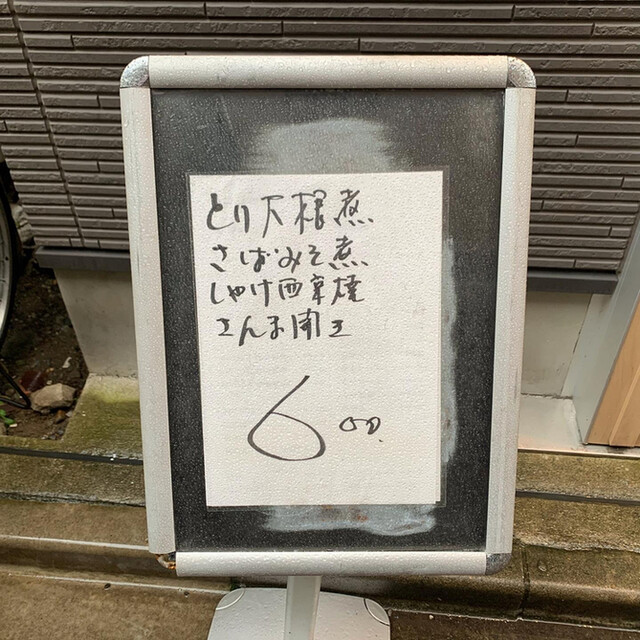 とり大根煮
さばみそ煮
しゃけ西京焼
さんま開き
600